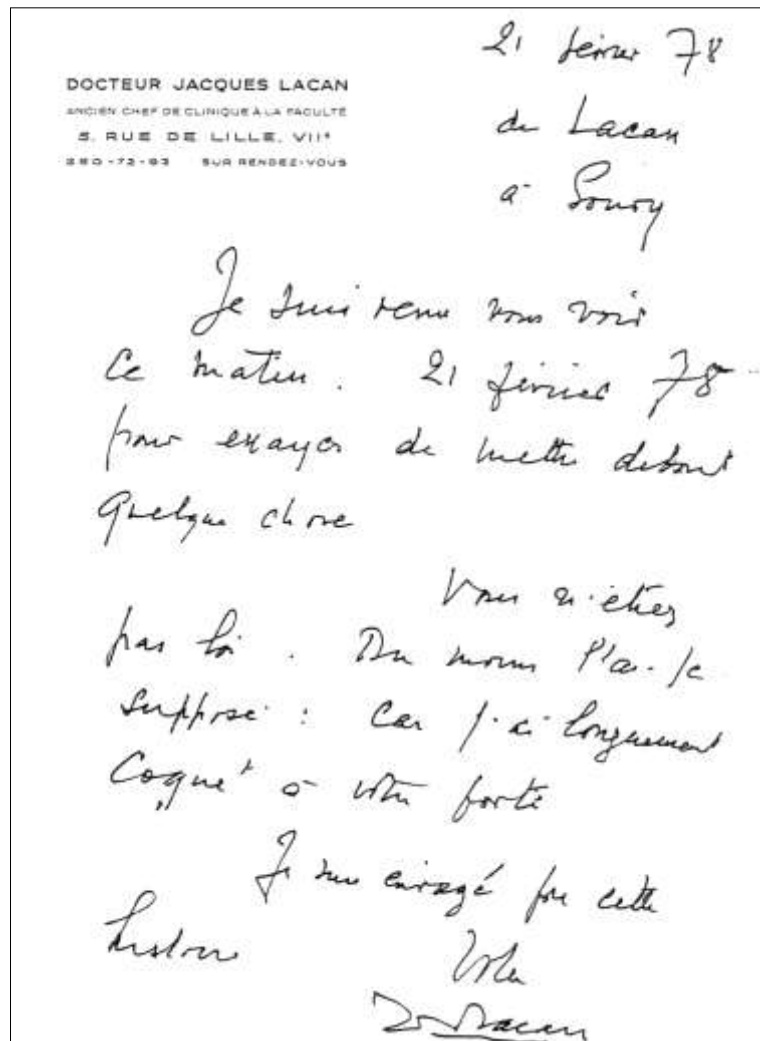 DOCTEUR JACQUES LACAN
ANCIEN CHEF DE CLINIQUE À LA FACULTÉ
5, RUE DE LILLE, VIIᵉ
260-72-93 SUR RENDEZ-VOUS
21 février 78
de Lacan
à Soury
Je suis venu vous voir
ce matin. 21 février 78
pour essayer de mettre debout
quelque chose
Vous n'étiez
pas là. Du moins l'ai-je
supposé : car j'ai longuement
coqué à votre porte
Je suis enragé par cette
histoire
Votre
Lacan